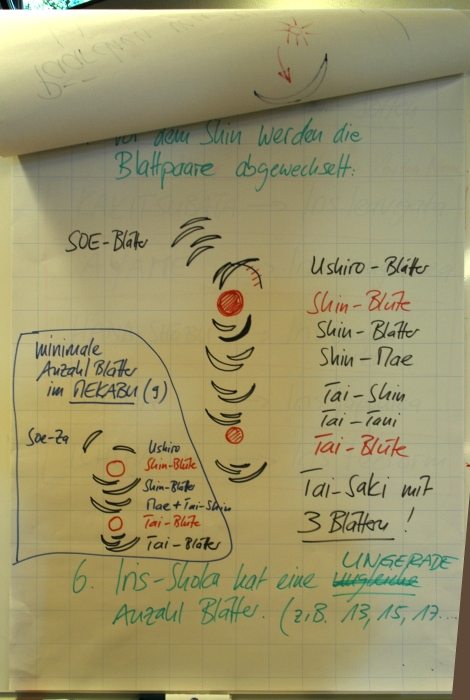 vor dem Shin werden die
Blattpaare abgewechselt:
SOE-Blätter
Ushiro-Blätter
Shin-Blüte
Shin-Blätter
Shin-Mae
Tai-Shin
Tai-Tani
Tai-Blüte
Tai-Saki mit
3 Blättern!
minimale
Anzahl Blätter
im MEKABU (9)
Soe-Za
Ushiro
Shin-Blüte
Shin-Blätter
Mae + Tai-Shin
Tai-Blüte
Tai-Blätter
UNGERADE
6. Iris-Shoka hat eine ungleiche
Anzahl Blätter. (z.B. 13, 15, 17...